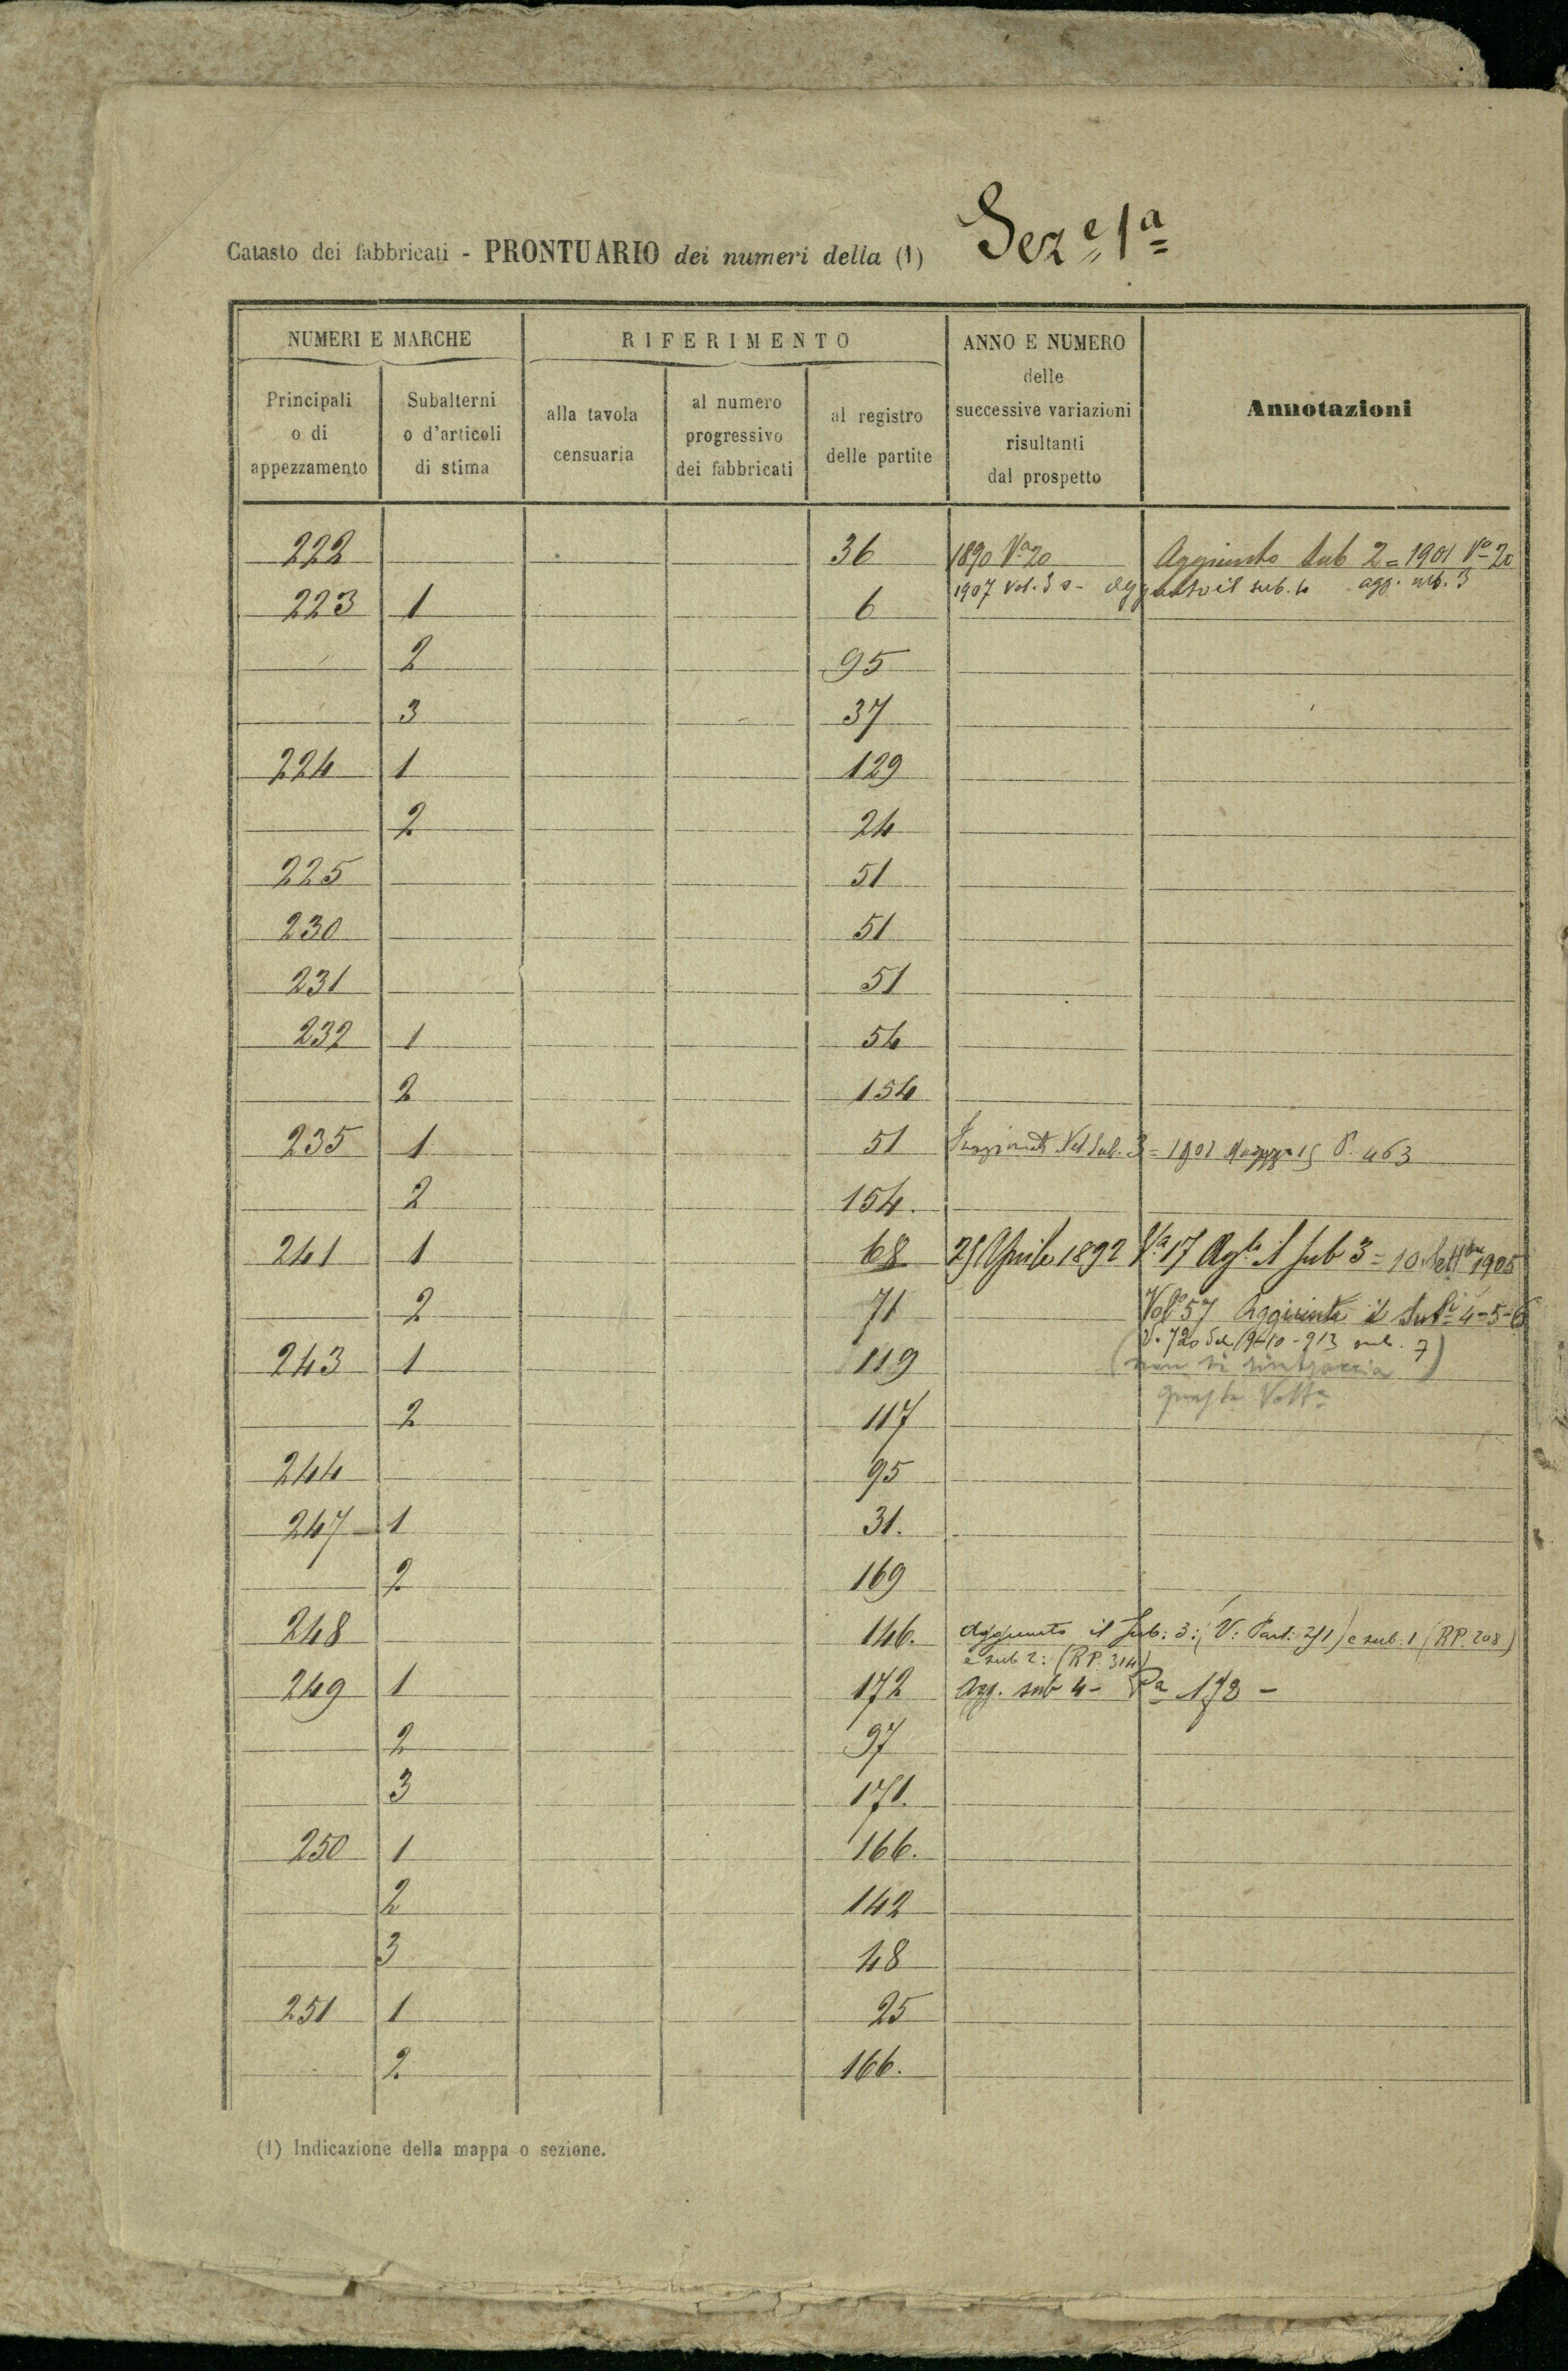 Catasto dei fabbricati - PRONTUARIO dei numeri della (1) Sez.e 1a
NUMERI E MARCHE
RIFERIMENTO
ANNO E NUMERO
delle
successive variazioni
risultanti
dal prospetto
Annotazioni
Principali
o di
appezzamento
Subalterni
o d'articoli
di stima
alla tavola
censuaria
al numero
progressivo
dei fabbricati
al registro
delle partite
222 36 1890 Va 20 Aggiunto sub 2 = 1901 Va 20
1907 Vol. 3 aggiunto il sub. 4 agg. sub. 3
223 1 6
2 95
3 37
224 1 129
2 24
225 51
230 51
231 51
232 1 54
2 154
235 1 51 Sub. 3 = 1901 15 P. 463
2 154.
241 1 68 25 Aprile 1892 Va 17 Agto il sub 3 = 10 Settbre 1905
2 71 Vole 57 Aggiunti i Subi 4-5-6
V. 720 Sch 19-10-913 sub. 7
243 1 119 (non si rintraccia)
questa Volta
2 117
244 95
247 1 31.
2 169
248 146. Aggiunto il Sub: 3: (V: Part: 271) e sub: 1 (RP. 208)
e sub 2: (RP. 314)
249 1 172 Agg. sub 4 - Pa 172 -
2 97
3 171.
250 1 166.
2 142
3 48
251 1 25
2 166.
(1) Indicazione della mappa o sezione.